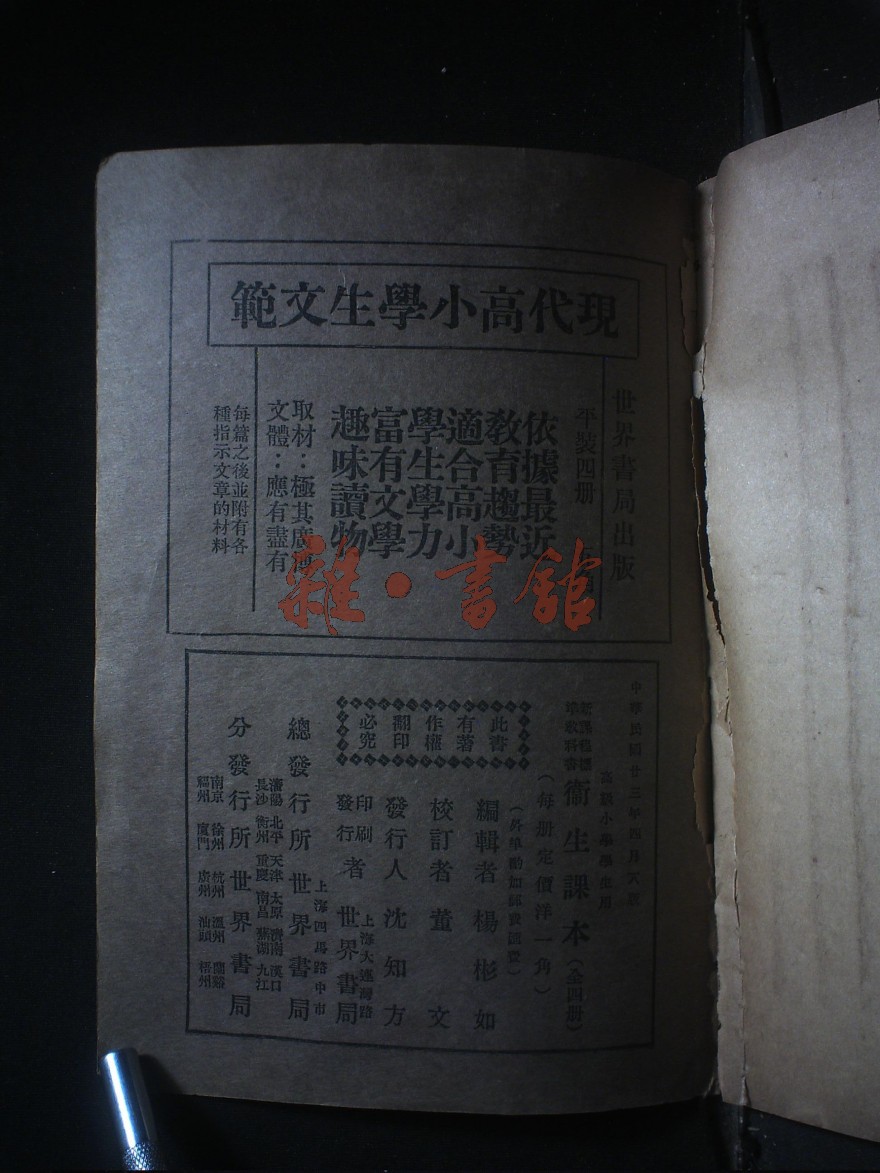 現代高小學生文範
世界書局出版
平裝四册
依據最近
教育趨勢
適合高小
學生學力
富有文學
趣味讀物
取材：極其廣博
文體：應有盡有
每篇之後並附有各
種指示文章的材料
雜·書館
中華民國廿三年四月
新課程標
準教科書
高級小學學生用
衞生課本（全四册）
（每册定價洋一角）
（外埠酌加郵費匯費）
編輯者 楊彬如
校訂者 董文
發行人 沈知方
印刷
發行
者 世界書局
上海大連灣路
總發行所 世界書局
上海四馬路中市
瀋陽 北平 天津 太原 濟南 漢口
長沙 衡州 重慶 南昌 蕪湖 九江
分發行所 世界書局
南京 徐州 杭州 溫州 蘭谿
福州 廈門 廣州 汕頭 梧州
此書
有著
作權
翻印
必究